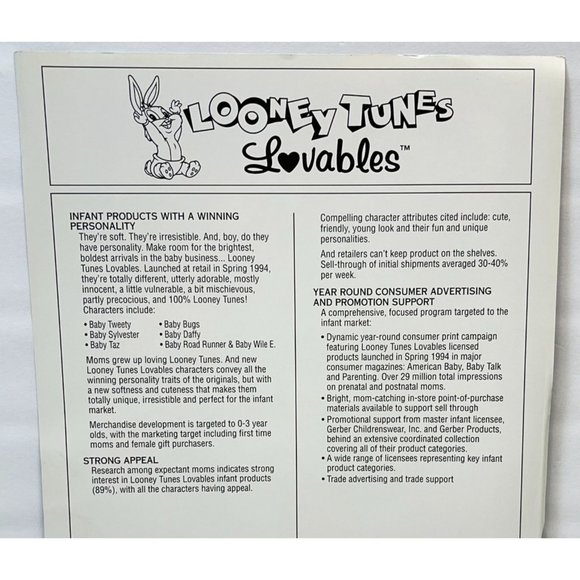 LOONEY TUNES
Lovables™
INFANT PRODUCTS WITH A WINNING
PERSONALITY
They're soft. They're irresistible. And, boy, do they
have personality. Make room for the brightest,
boldest arrivals in the baby business... Looney
Tunes Lovables. Launched at retail in Spring 1994,
they're totally different, utterly adorable, mostly
innocent, a little vulnerable, a bit mischievous,
partly precocious, and 100% Looney Tunes!
Characters include:
• Baby Tweety • Baby Bugs
• Baby Sylvester • Baby Daffy
• Baby Taz • Baby Road Runner & Baby Wile E.
Moms grew up loving Looney Tunes. And new
Looney Tunes Lovables characters convey all the
winning personality traits of the originals, but with
a new softness and cuteness that makes them
totally unique, irresistible and perfect for the infant
market.
Merchandise development is targeted to 0-3 year
olds, with the marketing target including first time
moms and female gift purchasers.
STRONG APPEAL
Research among expectant moms indicates strong
interest in Looney Tunes Lovables infant products
(89%), with all the characters having appeal.
Compelling character attributes cited include: cute,
friendly, young look and their fun and unique
personalities.
And retailers can't keep product on the shelves.
Sell-through of initial shipments averaged 30-40%
per week.
YEAR ROUND CONSUMER ADVERTISING
AND PROMOTION SUPPORT
A comprehensive, focused program targeted to the
infant market:
• Dynamic year-round consumer print campaign
featuring Looney Tunes Lovables licensed
products launched in Spring 1994 in major
consumer magazines: American Baby, Baby Talk
and Parenting. Over 29 million total impressions
on prenatal and postnatal moms.
• Bright, mom-catching in-store point-of-purchase
materials available to support sell through
• Promotional support from master infant licensee,
Gerber Childrenswear, Inc. and Gerber Products,
behind an extensive coordinated collection
covering all of their product categories.
• A wide range of licensees representing key infant
product categories.
• Trade advertising and trade support